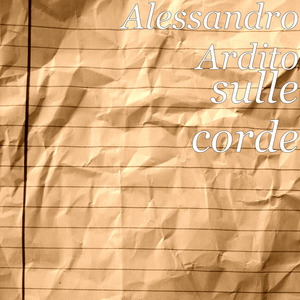 Alessandro
Ardito
sulle
corde